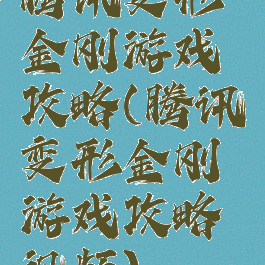 腾讯变形
金刚游戏
攻略(腾讯
变形金刚
游戏攻略
视频)